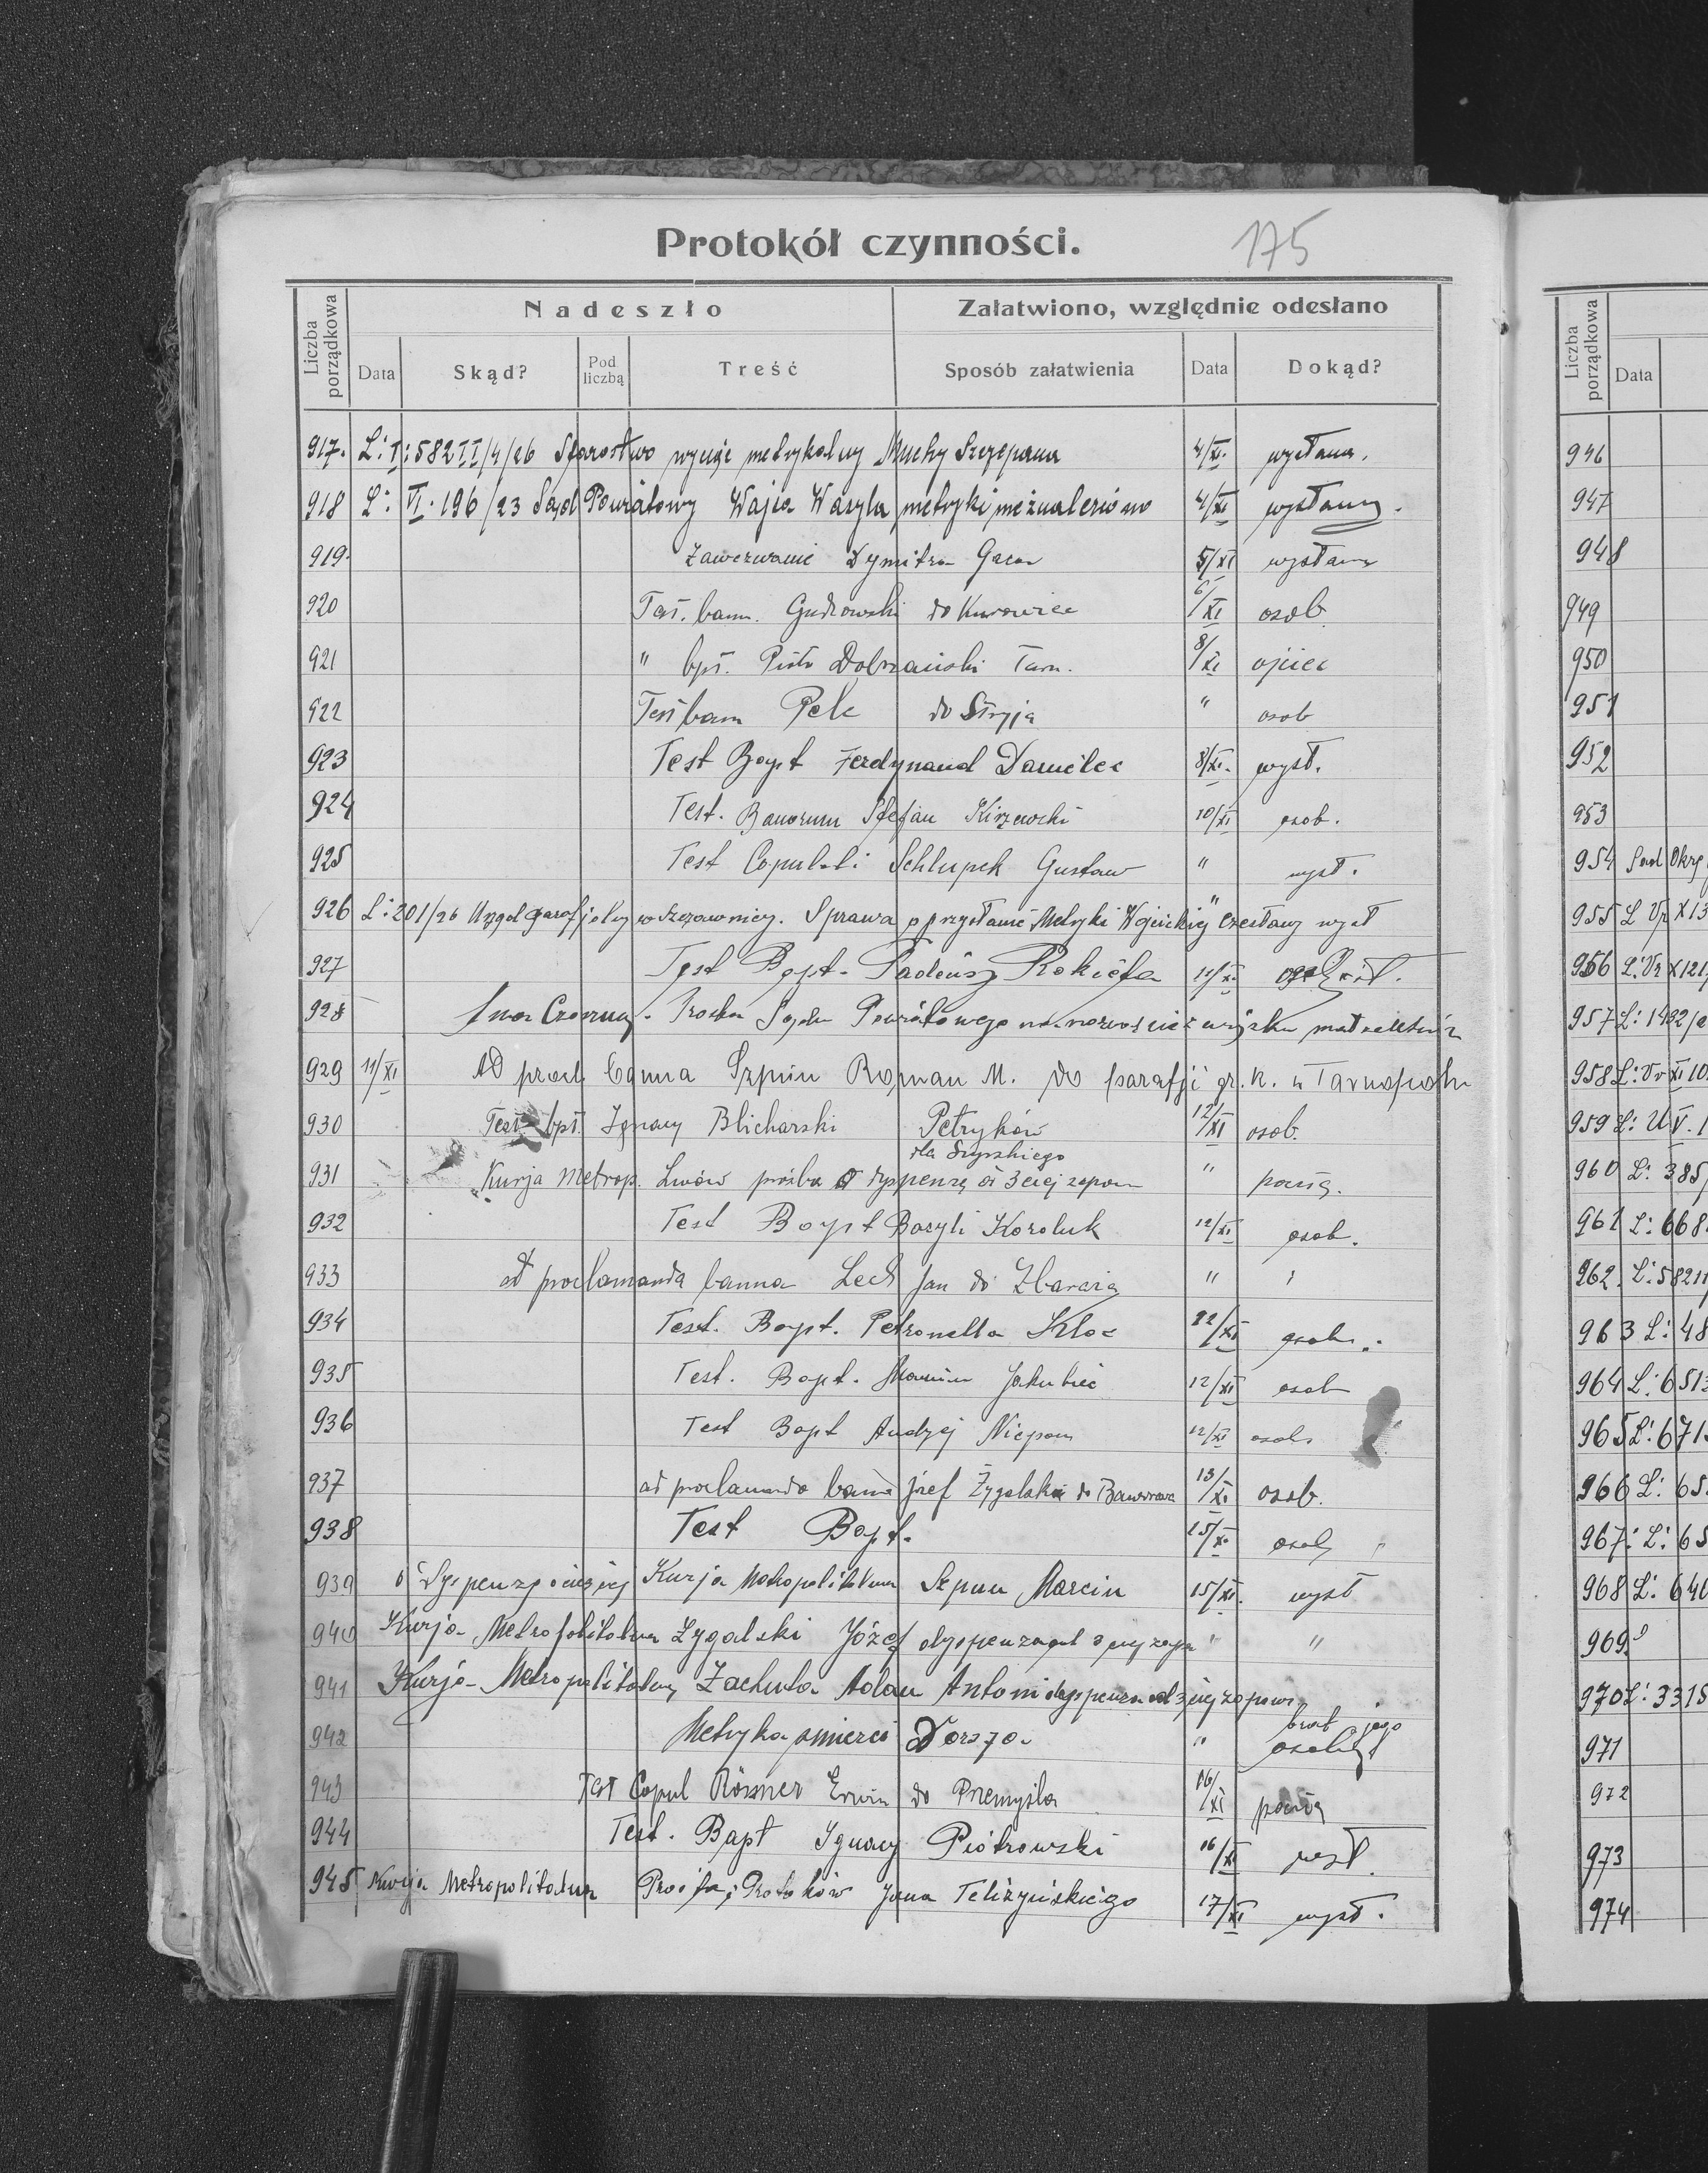 Protokół czynności.
175
Liczba porządkowa
Nadeszło
Załatwiono, względnie odesłano
Data Skąd? Pod liczbą Treść Sposób załatwienia Data Dokąd?
917. L: I: 582 II/4/26 Starostwo wyciąg metrykalny Muchy Szczepana 4/XI. wysłana.
918 L: VI. 196/23 Sąd Powiatowy Wajca Wasyla metryki nie znaleziono 4/XI wysłany.
919. Zawezwanie Dymitra Gaca 5/XI wysłana
920 Test. bann. Gudzowski do Kurowice 6/XI osob
921 " bpt. Piotr Dobrzański Tarn. 8/XI ojciec
922 Test bann Pelc do Stryja " osob
923 Test Bapt Ferdynand Danielec 8/XI. wysł.
924 Test. Banorum Stefan Kirzewski 10/XI osob.
925 Test Copulati Schlupek Gustaw " wysł.
926 L: 201/26 Urząd parafjalny w Szczawnicy. Sprawa o przysłanie Metryki Wójcickiej Czesławy " wysł
927 Test Bapt. Tadeusz Rokieta 11/XI.
928 Czarny. Prośba Sądu Powiatowego
929 11/XI Ad procl banna Szpun Roman M. do parafji gr. k. w Tarnopolu
930 Test bpt. Ignacy Blicharski Petryków 12/XI osob.
dla Szpskiego
931 Kurja Metrop. Lwów prośba o dyspenzę od 3ciej zapow "
932 Test Bapt Bazyli Koroluk 12/XI osob.
933 ad proclamanda banna Lech Jan do Zbaraża " "
934 Test. Bapt. Petronella Kloc 12/XI osob.
935 Test. Bapt. Jakubiec 12/XI osob
936 Test Bapt Andrzej Niepom 12/XI osob
937 ad proclamanda banna Józef Żygalski do Baworowa 13/XI osob.
938 Test Bapt. 15/XI. osob "
939 o Dyspenzę Kurja Metropolitalna Szpun Marcin 15/XI. wysł
940 Kurja Metropolitalna Zygalski Józef dyspenza od 3 ciej zapo " "
941 Kurja Metropolitalny Zachuta Adam Antoni dyspenza od 3 ciej zapowi
942 Metryka śmierci Dorsza " brat jego
943 Test Copul Rösner Erwin do Przemyśla 16/XI pocztą
944 Test. Bapt Ignacy Piotrowski 16/XI wysł.
945 Kurja Metropolitalna Protoków Jana Teliżyńskiego 17/XI wysł.
Liczba porządkowa
Data
946
947
948
949
950
951
952
953
954 Sąd Okrę
955 L Vr X 13
956 L: Vr X 121/
957 L: 1492/2
958 L: Vr XI 10
959 L: U V. 1
960 L: 385/
961 L: 668
962. L: 5821
963 L: 48
964 L: 6513
965 L: 671
966 L: 65
967: L: 65
968 L: 640
969
970 L: 3315
971
972
973
974